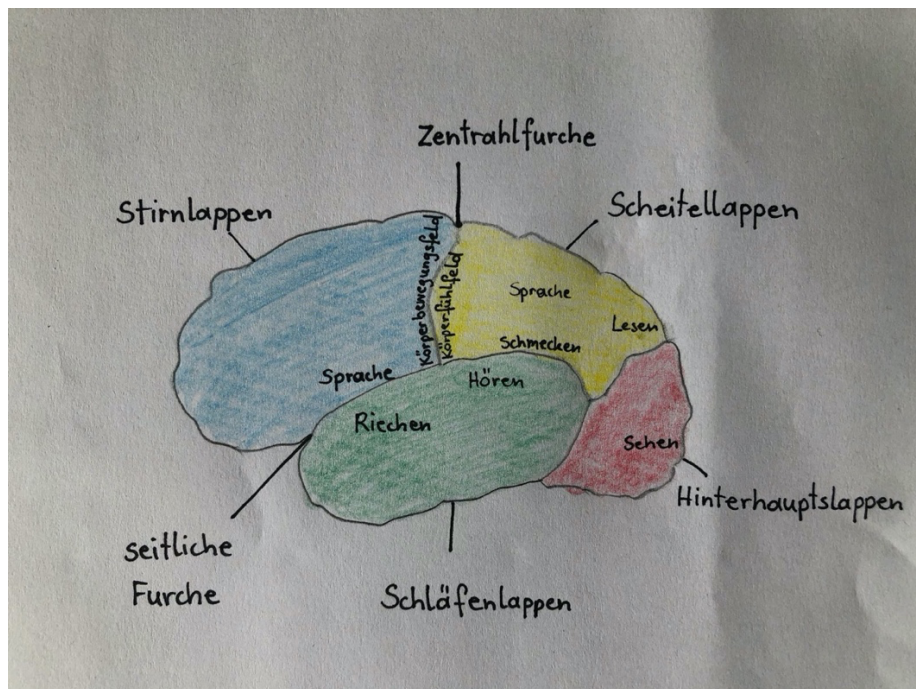 Zentrahlfurche
Stirnlappen
Scheitellappen
Körperbewegungsfeld
Körperfühlfeld
Sprache
Lesen
Schmecken
Sprache
Hören
Riechen
Sehen
Hinterhauptslappen
seitliche
Furche
Schläfenlappen